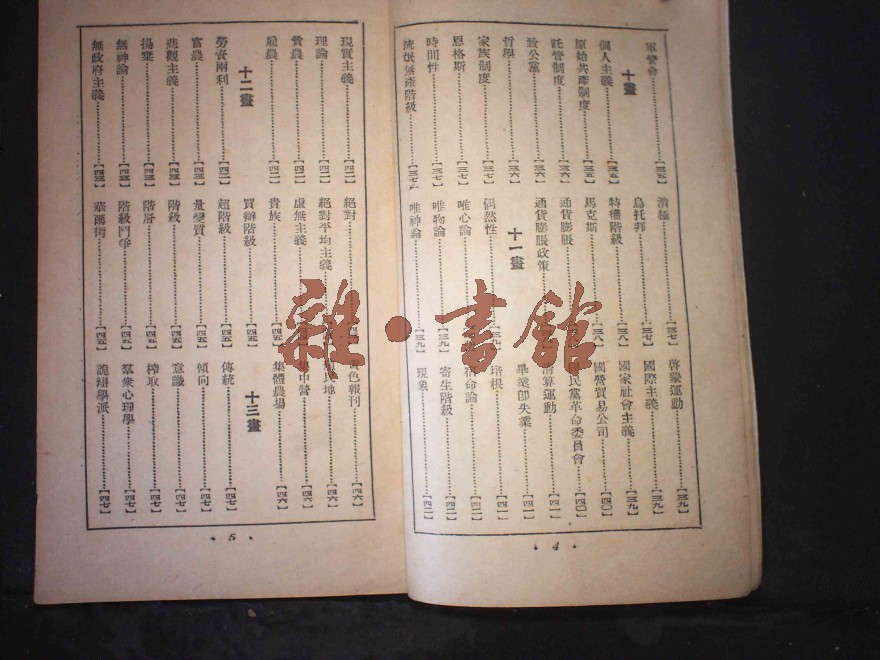 軍管會【三五】
十畫
個人主義【三五】
原始共產制度【三五】
託管制度【三六】
致公黨【三六】
哲學【三六】
家族制度【三七】
恩格斯【三七】
時間性【三七】
流氓無產階級【三七】
消極【三七】
烏托邦【三七】
特權階級【三八】
馬克斯【三八】
通貨膨脹
通貨膨脹政策
十一畫
偶然性【三九】
唯心論
唯物論【三九】
唯神論【三九】
啓蒙運動【三九】
國際主義【三九】
國家社會主義【三九】
國營貿易公司【四〇】
民黨革命委員會【四〇】
清算運動【四一】
畢業即失業【四一】
培根【四一】
宿命論【四二】
寄生階級【四二】
現象【四二】
• 4 •
現實主義【四二】
理論【四二】
貧農【四二】
雇農【四二】
十二畫
勞資兩利【四二】
富農【四三】
悲觀主義【四三】
揚棄【四三】
無神論【四三】
無政府主義【四三】
絕對
絕對平均主義
虛無主義
貴族【四五】
買辦階級【四五】
超階級【四五】
量變質【四五】
階級【四五】
階層【四五】
階級鬥爭【四五】
華爾街【四五】
黃色報刊【四六】
殖民地【四六】
集中營【四六】
集體農場【四六】
十三畫
傳統【四七】
傾向【四七】
意識【四七】
榨取【四七】
羣衆心理學【四七】
詭辯學派【四七】
• 5 •
雜·書館